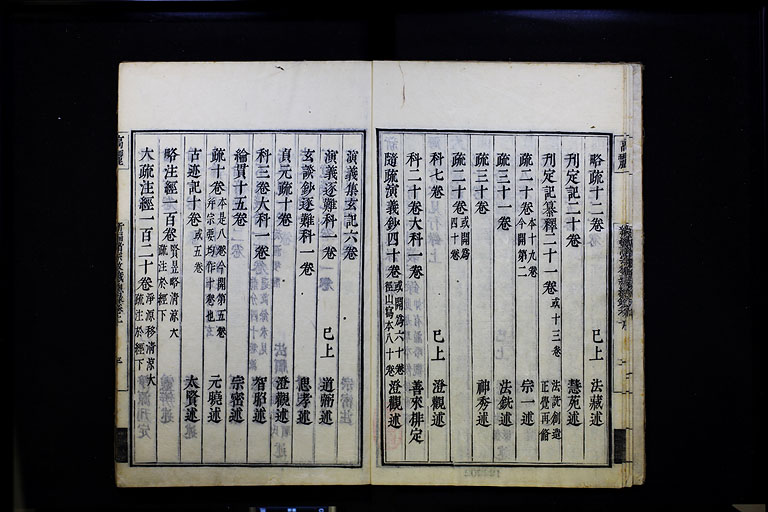 略疏十二卷 已上 法藏述
刋定記二十卷 慧苑述
刋定記纂釋二十一卷 或十三卷 法詵創造 正覺再脩
疏二十卷 本十九卷 今開第二 宗一述
疏三十一卷 法銑述
疏三十卷 神秀述
疏二十卷 或開爲四十卷
科七卷 已上
科二十卷大科一卷 善來排定
隨疏演義鈔四十卷 或開爲六十卷 徑山寫本八十卷 澄觀述
演義集玄記六卷
演義逐難科一卷 已上 道弼述
玄談鈔逐難科一卷 思孝述
貞元疏十卷 澄觀述
科三卷大科一卷 智昭述
綸貫十五卷 宗密述
疏十卷 本是八卷今開第五卷 并宗要均作十卷也 元曉述
古迹記十卷 或五卷 太賢述
略注經一百卷 賢昱略清涼大疏注於經下
大疏注經一百二十卷 淨源移清涼大疏注於經下
高麗
高麗